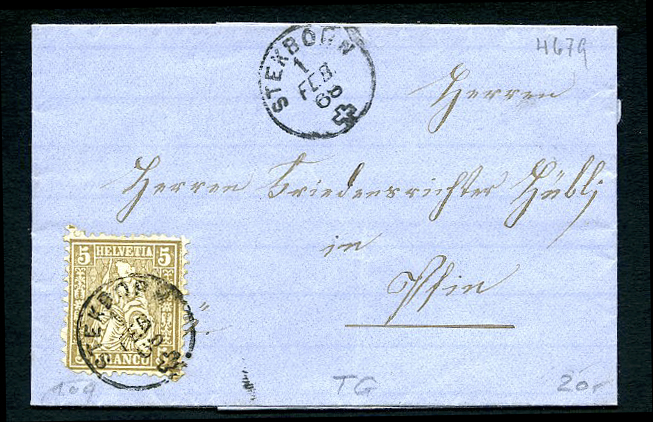 4679
STEKBORN
1
FEB
68
Herren
Herren Friedensrichter Hübli
in
Pfin
5 HELVETIA 5
FRANCO
STEKBORN
TG
20.-